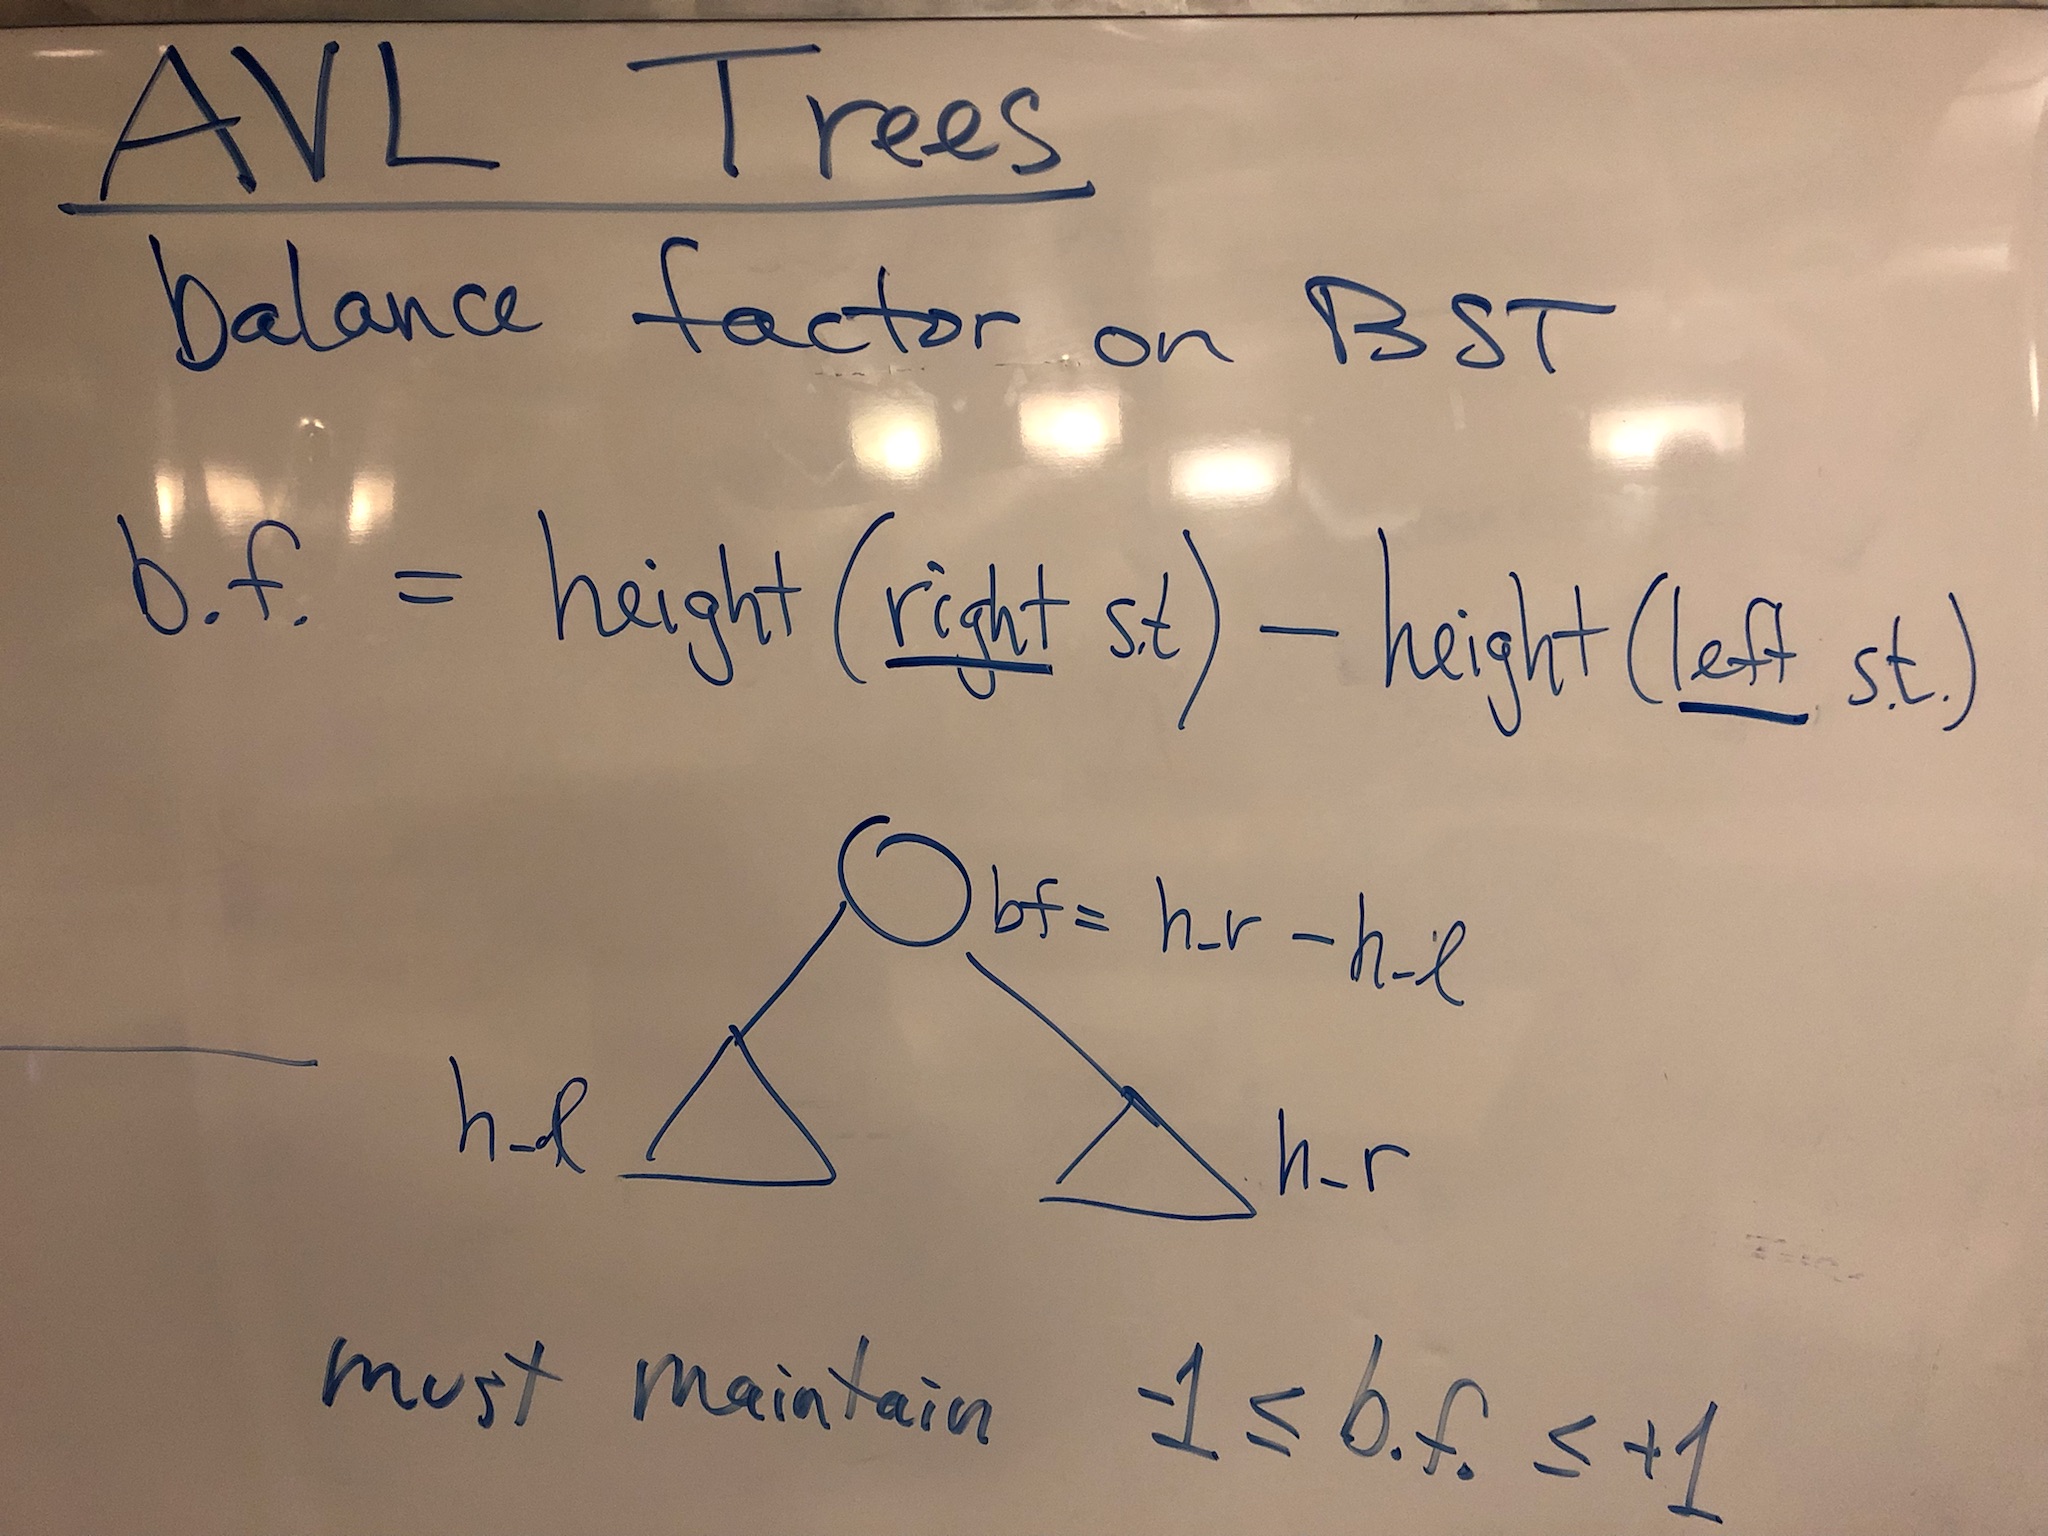 AVL Trees
balance factor on BST
b.f. = height (right s.t) - height (left s.t.)
bf = h_r - h_l
h_l
h_r
must maintain -1 ≤ b.f. ≤ +1